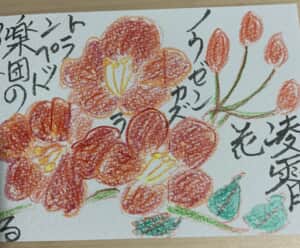 凌霄
花
ノウゼン
カズラ
トラ
ンペット
楽団の
る